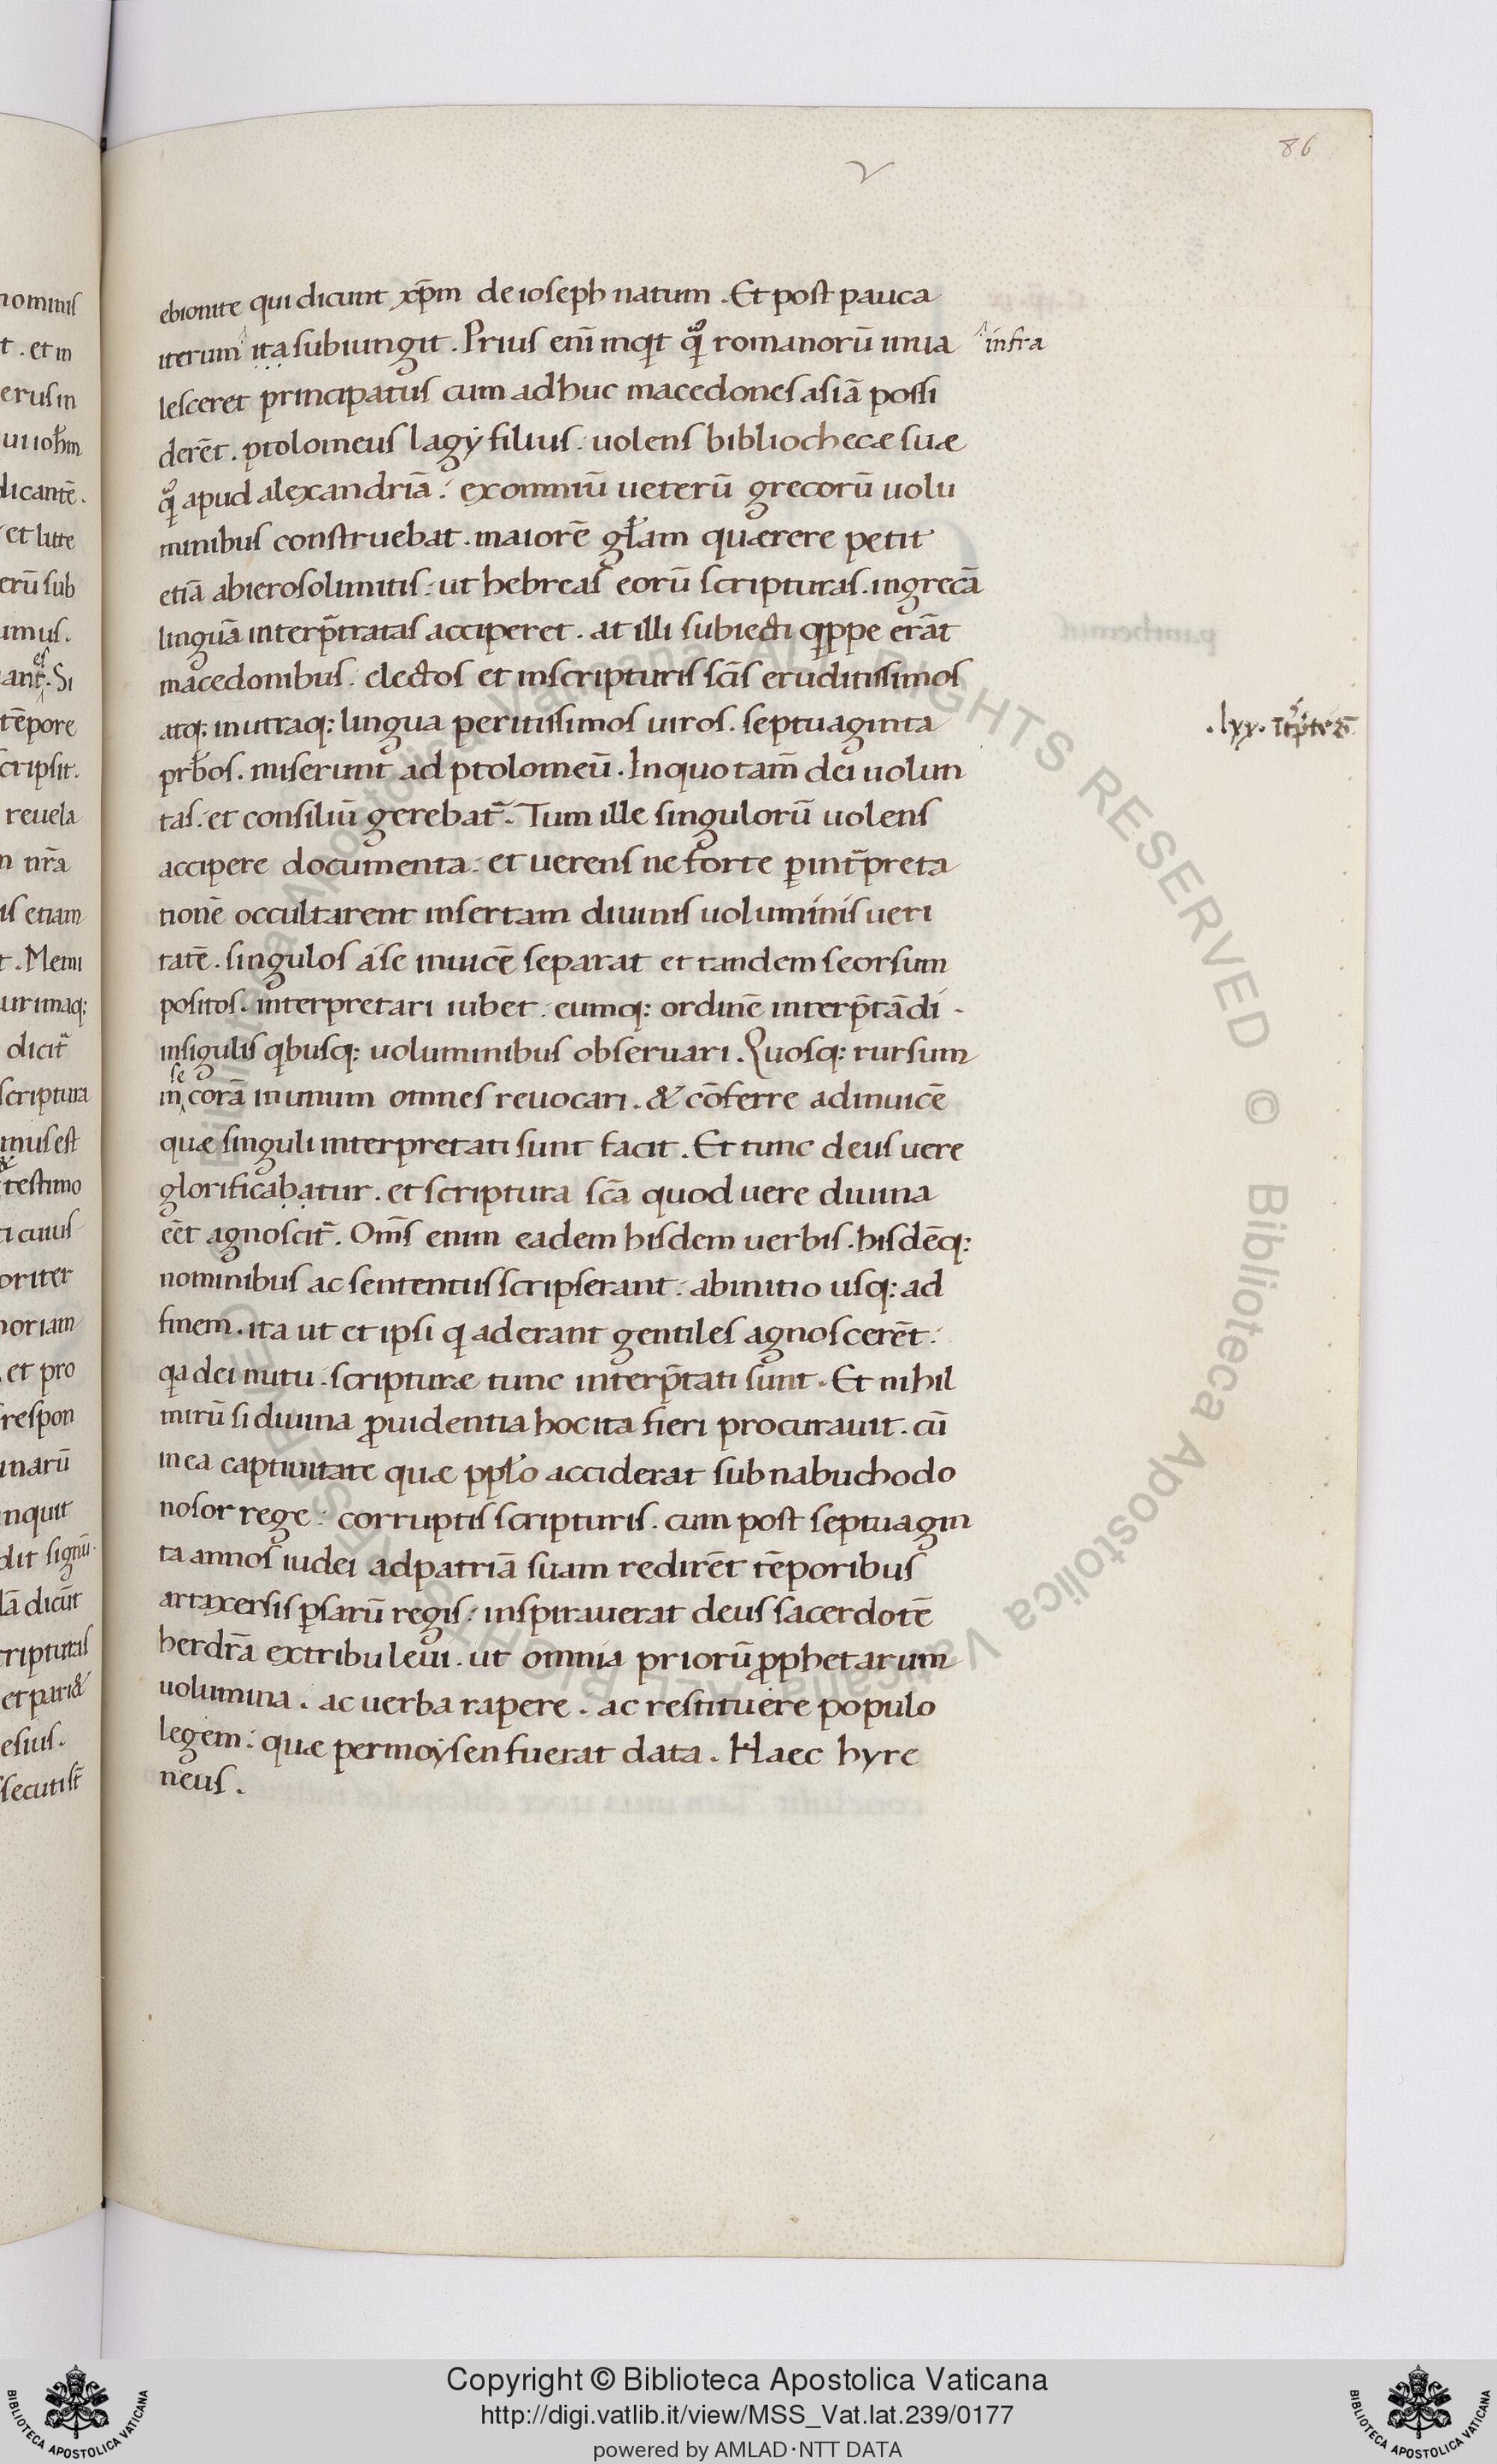 86
ebionite qui dicunt xp̄m de ioseph natum . Et post pauca
iterum ita subiungit . Prius eni̅ inqͥt qͣ͂ romanoru̅ inua
infra
lesceret principatus cum adhuc macedones asia̅ possi
dere̅t . ptolomeus lagẏ filius . uolens bibliothecæ suæ
apud alexandria̅ . ex omniu̅ ueteru̅ grecoru̅ uolu
minibus construebat . maiore̅ gl̅am quærere petit
etia̅ abierosolimitis . ut hebreas eoru̅ scripturas . ingreca̅
lingua̅ interp̅tratas acciperet . at illi subiecti qͥppe era̅t
macedonibus . electos et inscripturis sc̅is eruditissimos
atq; inutraq; lingua peritissimos uiros . septuaginta
.lxx. i̅t̅p̅te̅s
prb̅os . miserunt ad ptolomeu̅ . In quo tam̅ dei uolun
tas . et consiliu̅ gerebat᷑ . Tum ille singuloru̅ uolens
accipere documenta . et uerens ne forte ꝑint̅preta
tione̅ occultarent insertam diuinis uoluminis ueri
tate̅ . singulos áse inuice̅ separat et tandem seorsum
positos . interpretari iubet . eumq; ordine̅ interp̅ta̅di
insigulis qͥbusq; uoluminibus obseruari . Quosq; rursum
se
in cora̅ inunum omnes reuocari . & co̅ferre adinuice̅
quæ singuli interpretati sunt facit . Et tunc deus uere
glorificabatur . et scriptura sc̅a quod uere diuina
ee̅t agnoscit᷑ . Om̅s enim eadem hisdem uerbis . hisde̅q;
nominibus ac sententiis scripserant . abinitio usq; ad
finem . ita ut et ipsi qͥ aderant gentiles agnoscere̅t .
qͥa dei nutu . scripturæ tunc interp̅tati sunt . Et nihil
miru̅ si diuina ꝓuidentia hoc ita fieri procurauit . cu̅
inea captiuitate quæ ppl̅o acciderat sub nabuchodo
nosor rege . corruptis scripturis . cum post septuagin
ta annos iudei adpatria̅ suam redire̅t te̅poribus
artaxersis ꝑsaru̅ regis . inspirauerat deus sacerdote̅
herdr̅a extribu leui . ut omnia prioru̅ ꝓphetarum
uolumina . ac uerba rapere . ac restituere populo
legem . quæ permoẏsen fuerat data . Haec hyre
neus .
Copyright © Biblioteca Apostolica Vaticana
http://digi.vatlib.it/view/MSS_Vat.lat.239/0177
powered by AMLAD·NTT DATA